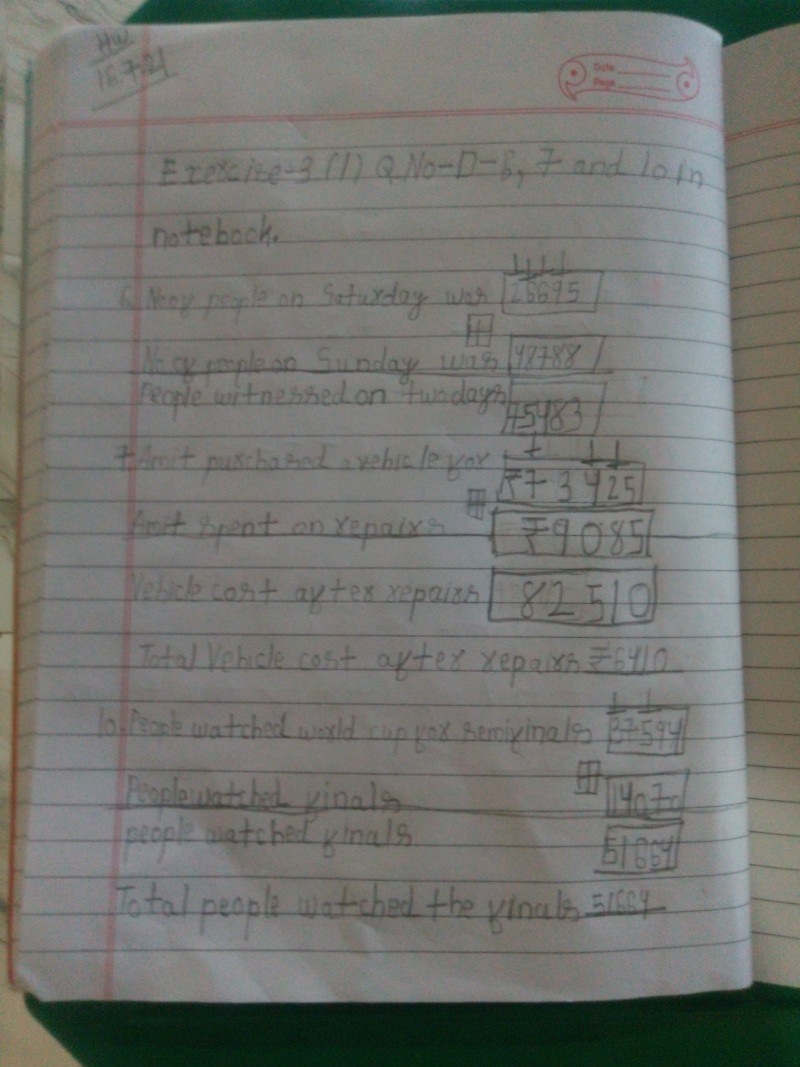 HW
15.7.21
Date
Page
Exercise-3 (1) Q.No-D-6, 7 and 10 in
notebook.
6. No of people on Saturday was 26695
+
No of people on Sunday was 48788
People witnessed on two days 75483
7. Amit purchased a vehicle for ₹73425
+
Amit spent on repairs ₹9085
Vehicle cost after repairs 82510
Total Vehicle cost after repairs ₹6410
10. People watched world cup for semifinals 37594
+
People watched finals 14070
people watched finals 51664
Total people watched the finals 51664